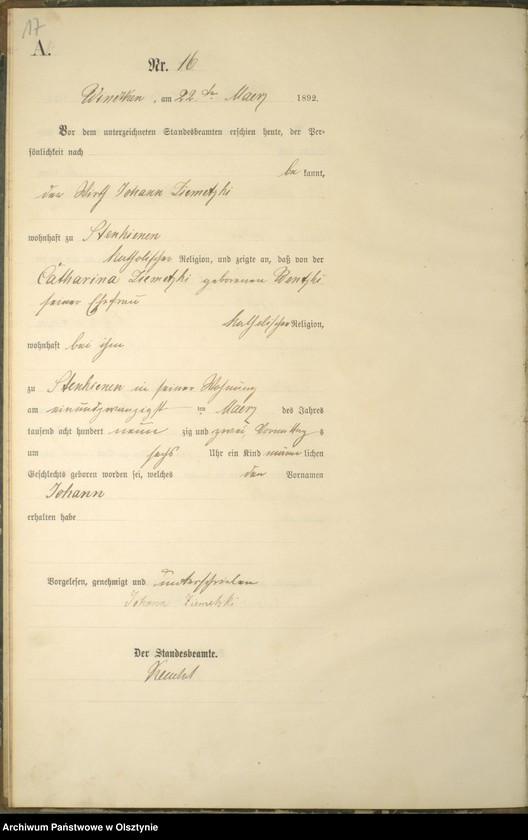 17
A.
Nr. 16
am 22 ten Maerz 1892.
Vor dem unterzeichneten Standesbeamten erschien heute, der Per-
sönlichkeit nach
bekannt,
der Wirth Johann Ziemetzki
wohnhaft zu Stenkienen
katholischer Religion, und zeigte an, daß von der
Catharina Ziemetzki geborenen
seiner Ehefrau
katholischer Religion,
wohnhaft bei ihm
zu Stenkienen in seiner Wohnung
am einundzwanzigst ten Maerz des Jahres
tausend acht hundert neun zig und zwei, Vormittag s
um sechs Uhr ein Kind männlichen
Geschlechts geboren worden sei, welches den Vornamen
Johann
erhalten habe
Vorgelesen, genehmigt und unterschrieben
Johann Ziemetzki
Der Standesbeamte.
Archiwum Państwowe w Olsztynie